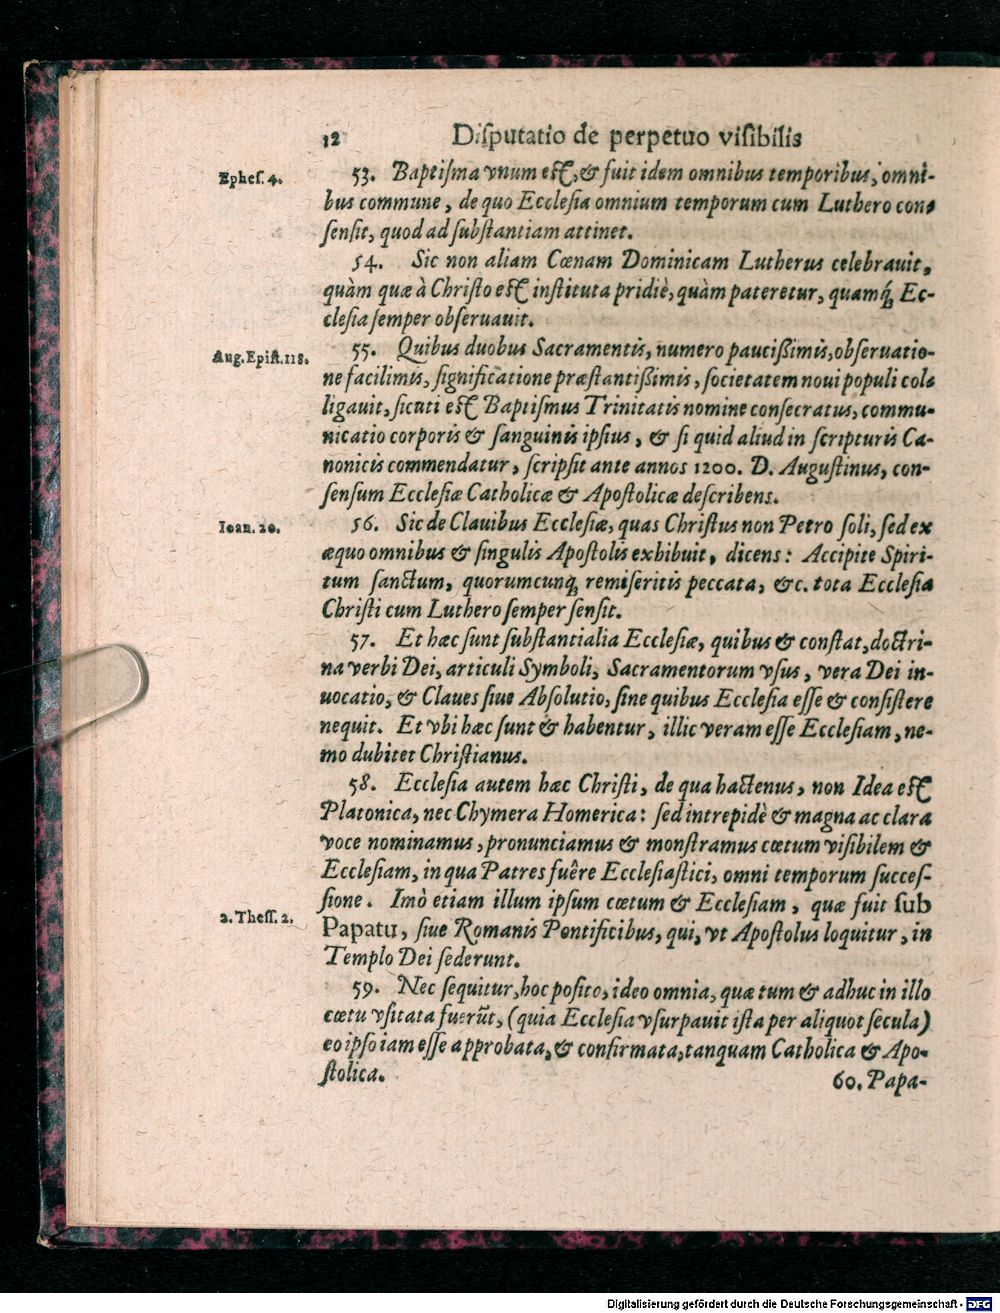 12 Diſputatio de perpetuo viſibilis
Epheſ. 4. 53. Baptiſma vnum eſt, & fuit idem omnibus temporibus, omni-
bus commune, de quo Eccleſia omnium temporum cum Luthero con-
ſenſit, quod ad ſubſtantiam attinet.
54. Sic non aliam Cœnam Dominicam Lutherus celebrauit,
quàm quæ à Chriſto eſt inſtituta pridiè, quàm pateretur, quamq́; Ec-
cleſia ſemper obſeruauit.
Aug. Epiſt. 118. 55. Quibus duobus Sacramentis, numero pauciſſimis, obſeruatio-
ne facilimis, ſignificatione præſtantiſſimis, ſocietatem noui populi col-
ligauit, ſicuti eſt Baptiſmus Trinitatis nomine conſecratus, commu-
nicatio corporis & ſanguinis ipſius, & ſi quid aliud in ſcripturis Ca-
nonicis commendatur, ſcripſit ante annos 1200. D. Auguſtinus, con-
ſenſum Eccleſiæ Catholicæ & Apoſtolicæ deſcribens.
Ioan. 20. 56. Sic de Clauibus Eccleſiæ, quas Chriſtus non Petro ſoli, ſed ex
æquo omnibus & ſingulis Apoſtolis exhibuit, dicens: Accipite Spiri-
tum ſanctum, quorumcunq; remiſeritis peccata, &c. tota Eccleſia
Chriſti cum Luthero ſemper ſenſit.
57. Et hæc ſunt ſubſtantialia Eccleſiæ, quibus & conſtat, doctri-
na verbi Dei, articuli Symboli, Sacramentorum vſus, vera Dei in-
uocatio, & Claues ſiue Abſolutio, ſine quibus Eccleſia eſſe & conſiſtere
nequit. Et vbi hæc ſunt & habentur, illic veram eſſe Eccleſiam, ne-
mo dubitet Chriſtianus.
58. Eccleſia autem hæc Chriſti, de qua hactenus, non Idea eſt
Platonica, nec Chymera Homerica: ſed intrepidè & magna ac clara
voce nominamus, pronunciamus & monſtramus cœtum viſibilem &
Eccleſiam, in qua Patres fuêre Eccleſiaſtici, omni temporum ſucceſ-
ſione. Imò etiam illum ipſum cœtum & Eccleſiam, quæ fuit ſub
2. Theſſ. 2. Papatu, ſiue Romanis Pontificibus, qui, vt Apoſtolus loquitur, in
Templo Dei ſederunt.
59. Nec ſequitur, hoc poſito, ideo omnia, quæ tum & adhuc in illo
cœtu vſitata fuerũt, (quia Eccleſia vſurpauit iſta per aliquot ſecula)
eo ipſo iam eſſe approbata, & confirmata, tanquam Catholica & Apo-
ſtolica.
60. Papa-
Digitalisierung gefördert durch die Deutsche Forschungsgemeinschaft - DFG